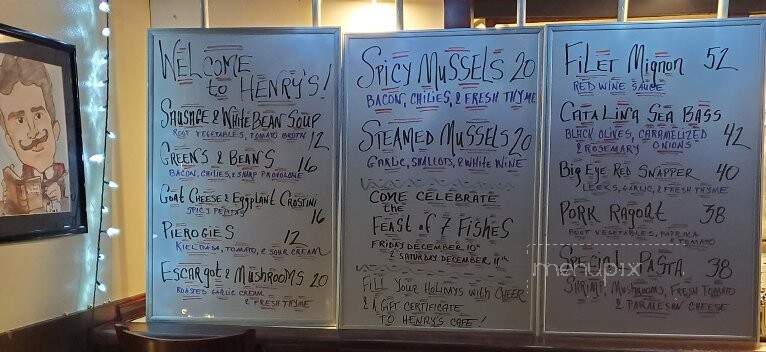 WELCOME
to HENRY'S!
SAUSAGE & WHITE BEAN SOUP
ROOT VEGETABLES, TOMATO BROTH 12
GREENS & BEANS
BACON, CHILIES, & SHARP PROVOLONE 16
GOAT CHEESE & EGGPLANT CROSTINI
SPICY PEPPERS 16
PIEROGIES 12
KIELBASA, TOMATO, & SOUR CREAM
ESCARGOT & MUSHROOMS 20
ROASTED GARLIC CREAM
& FRESH THYME
SPICY MUSSELS 20
BACON, CHILIES, & FRESH THYME
STEAMED MUSSELS 20
GARLIC, SHALLOTS, & WHITE WINE
COME CELEBRATE
the
FEAST of 7 FISHES
FRIDAY DECEMBER 10th
& SATURDAY DECEMBER 11th
FILL YOUR HOLIDAYS WITH CHEER
& A GIFT CERTIFICATE
TO HENRY'S CAFE!
FILET MIGNON 52
RED WINE SAUCE
CATALINA SEA BASS
BLACK OLIVES, CARAMELIZED 42
& ROSEMARY ONIONS
BIG EYE RED SNAPPER 40
LEEKS, GARLIC, & FRESH THYME
PORK RAGOUT 38
ROOT VEGETABLES, PAPRIKA
& TOMATO
menupix
SPECIAL PASTA 38
SHRIMP, MUSHROOMS, FRESH TOMATO
& PARMESAN CHEESE